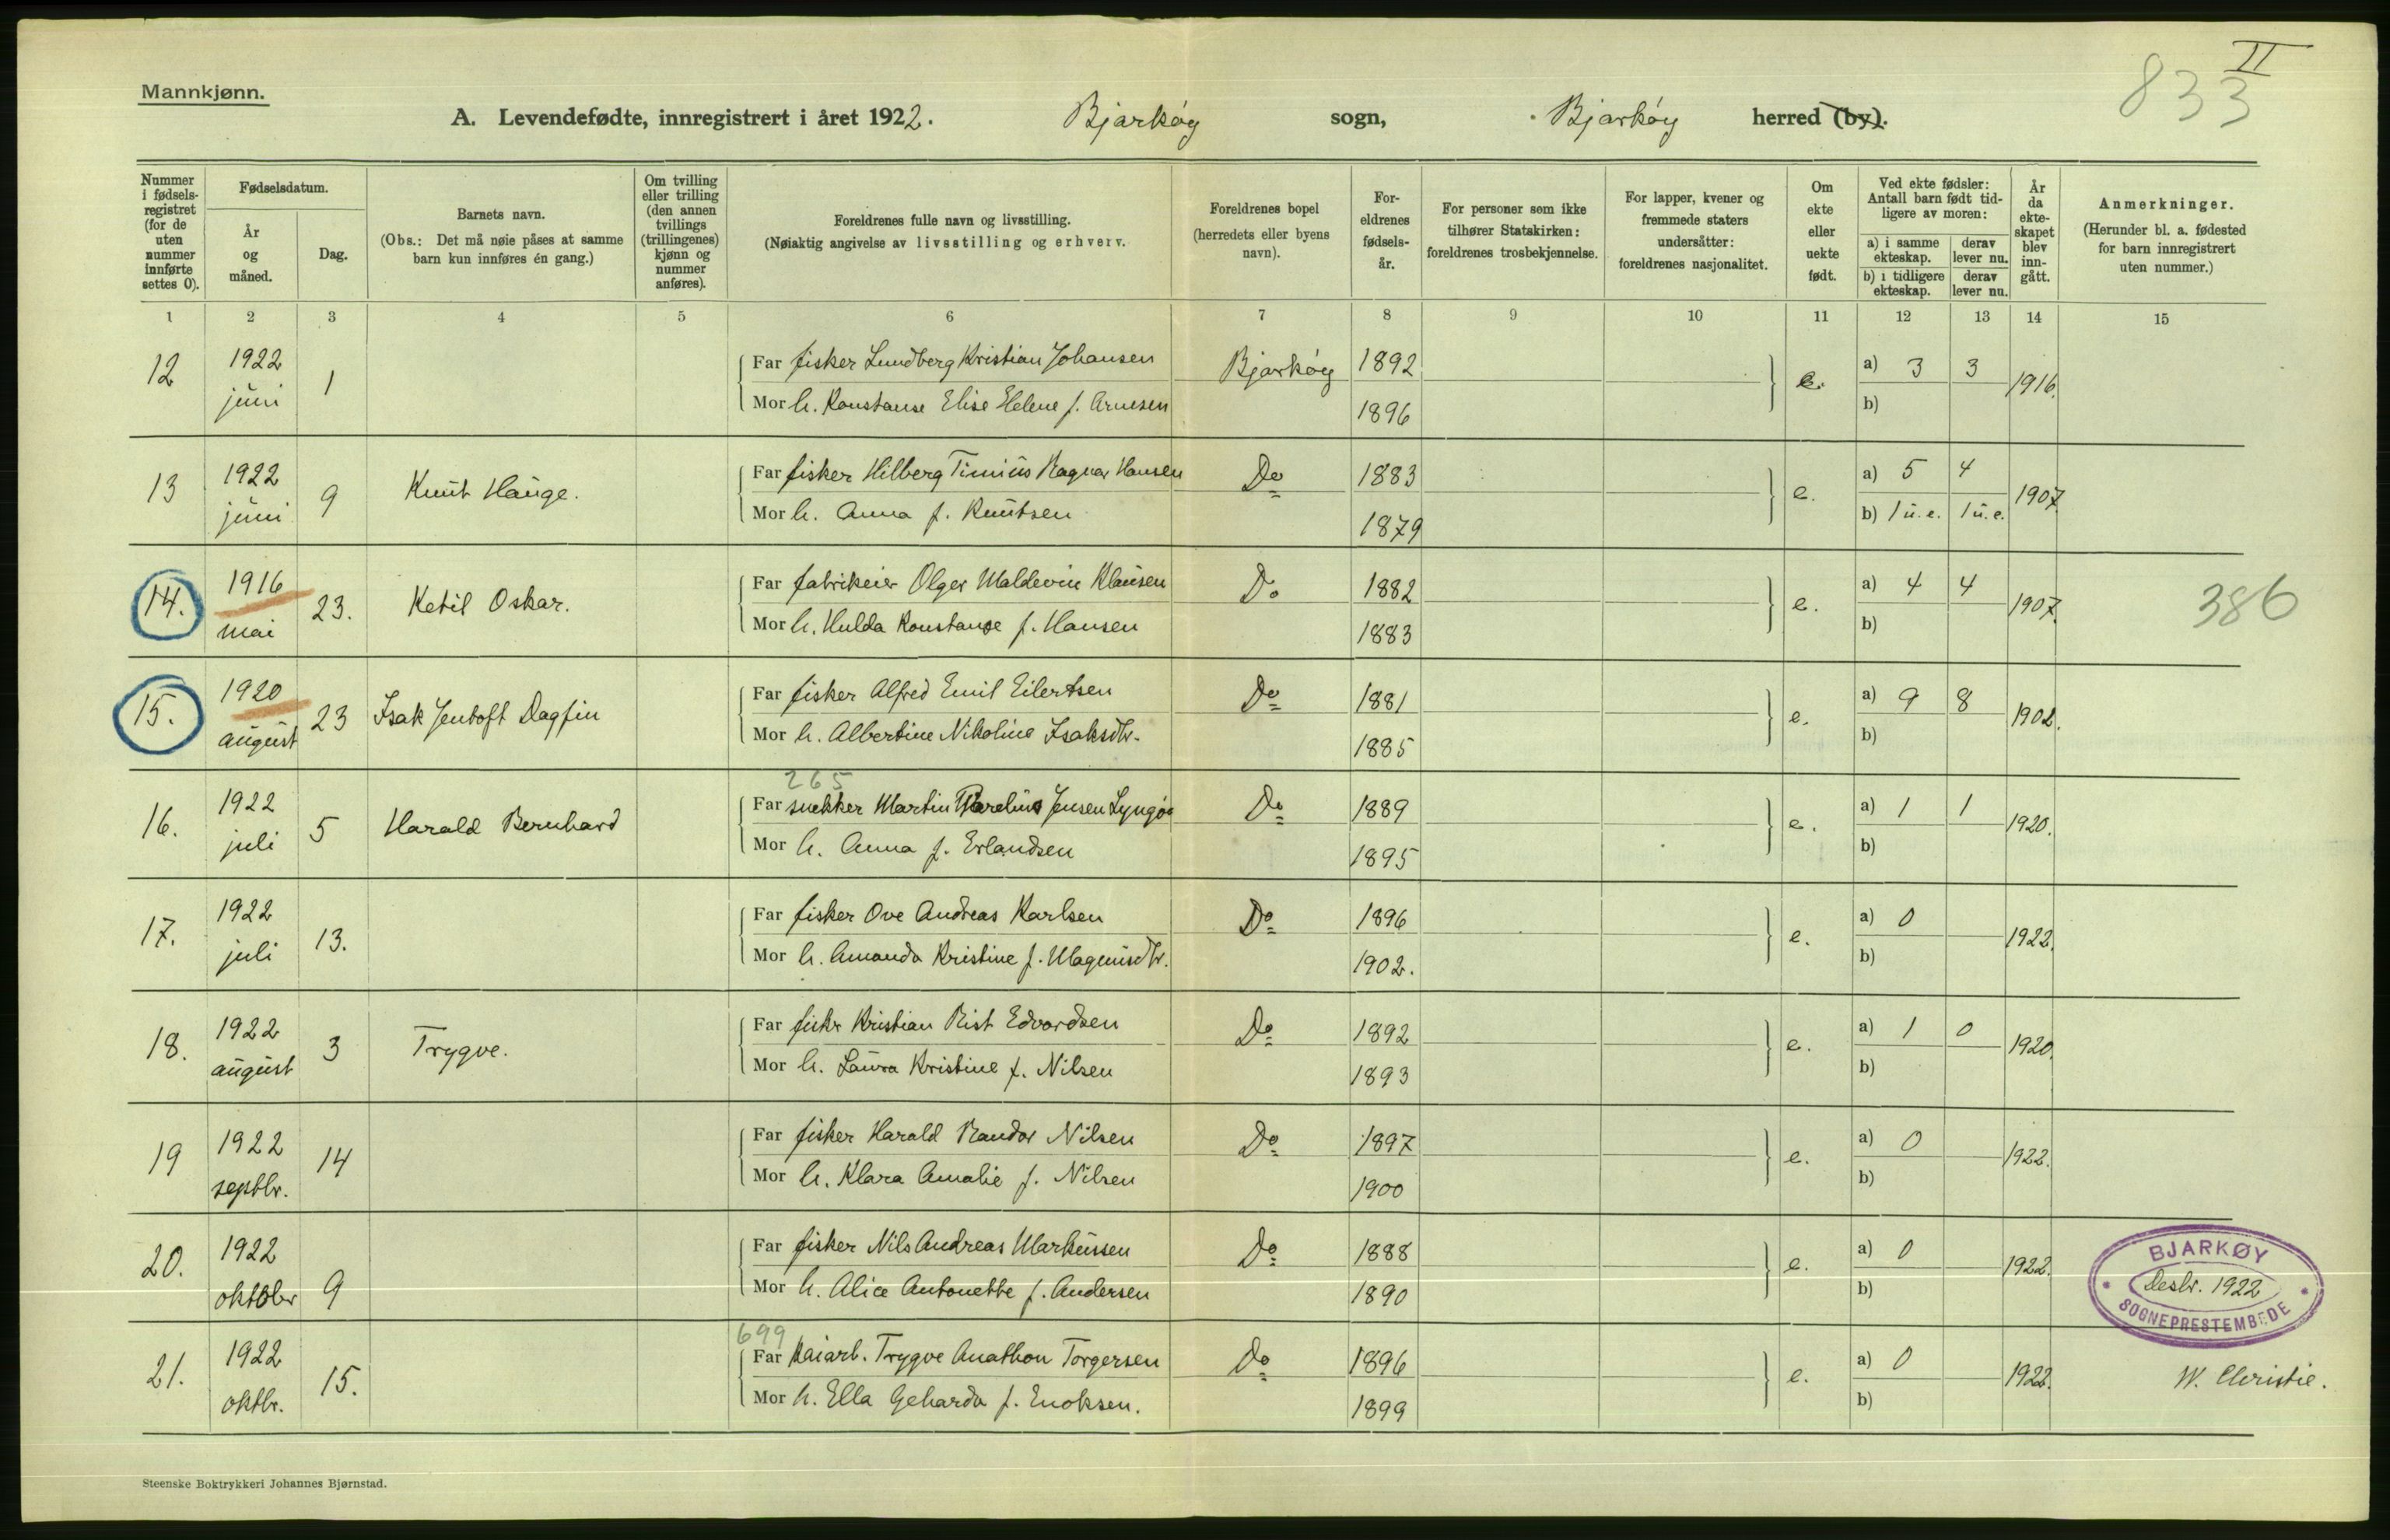 II
833
Mannkjønn.
A. Levendefødte, innregistrert i året 1922. Bjarkøy sogn, Bjarkøy herred (by).
Nummer i fødselsregistret (for de uten nummer innførte settes 0).
Fødselsdatum.
År og måned.
Dag.
Barnets navn.
(Obs.: Det må nøie påses at samme barn kun innføres én gang.)
Om tvilling eller trilling (den annen tvillings (trillingenes) kjønn og nummer anføres).
Foreldrenes fulle navn og livsstilling.
(Nøiaktig angivelse av livsstilling og erhverv.
Foreldrenes bopel (herredets eller byens navn).
Foreldrenes fødselsår.
For personer som ikke tilhører Statskirken: foreldrenes trosbekjennelse.
For lapper, kvener og fremmede staters undersåtter: foreldrenes nasjonalitet.
Om ekte eller uekte født.
Ved ekte fødsler: Antall barn født tidligere av moren:
a) i samme ekteskap. derav lever nu.
b) i tidligere ekteskap. derav lever nu.
År da ekteskapet blev inngått.
Anmerkninger.
(Herunder bl. a. fødested for barn innregistrert uten nummer.)
1 2 3 4 5 6 7 8 9 10 11 12 13 14 15
12 1922 juni 1 Far fisker Lundberg Kristian Johansen Bjarkøy 1892 e. a) 3 3 1916.
Mor h. Konstanse Elise Helene f. Arnesen 1896 b)
13 1922 juni 9 Knut Hauge. Far fisker Hilberg Timius Ragnar Hansen Do 1883 e. a) 5 4 1907.
Mor h. Anna f. Knutsen 1879 b) 1 u.e. 1 u.e.
14. 1916 mai 23. Ketil Oskar. Far fabrikeier Olger Maldevin Klausen Do 1882 e. a) 4 4 1907. 386
Mor h. Hulda Konstanse f. Hansen 1883 b)
15. 1920 august 23 Isak Jentoft Dagfin Far fisker Alfred Emil Eilertsen Do 1881 e. a) 9 8 1902.
Mor h. Albertine Nikoline Isaksdtr. 1885 b)
265
16. 1922 juli 5 Harald Bernhard Far snekker Martin Parelius Jensen Lyngøe Do 1889 e. a) 1 1 1920.
Mor h. Anna f. Erlandsen 1895 b)
17. 1922 juli 13. Far fisker Ove Andreas Karlsen Do 1896 e. a) 0 1922.
Mor h. Amanda Kristine f. Magnusdtr. 1902. b)
18. 1922 august 3 Trygve. Far fiskr Kristian Rist Edvardsen Do 1892 e. a) 1 0 1920.
Mor h. Laura Kristine f. Nilsen 1893 b)
19 1922 septbr. 14 Far fisker Harald Randor Nilsen Do 1897 e. a) 0 1922.
Mor h. Klara Amalie f. Nilsen 1900 b)
20. 1922 oktober 9 Far fisker Nils Andreas Markussen Do 1888 e. a) 0 1922.
Mor h. Alice Antonette f. Andersen 1890 b)
BJARKØY
Desbr. 1922
SOGNEPRESTEMBEDE
699
21. 1922 oktbr. 15. Far kaiarb. Trygve Anathon Torgersen Do 1896 e. a) 0 1922.
Mor h. Ella Geharda f. Enoksen. 1899 b)
W. Christie.
Steenske Boktrykkeri Johannes Bjørnstad.